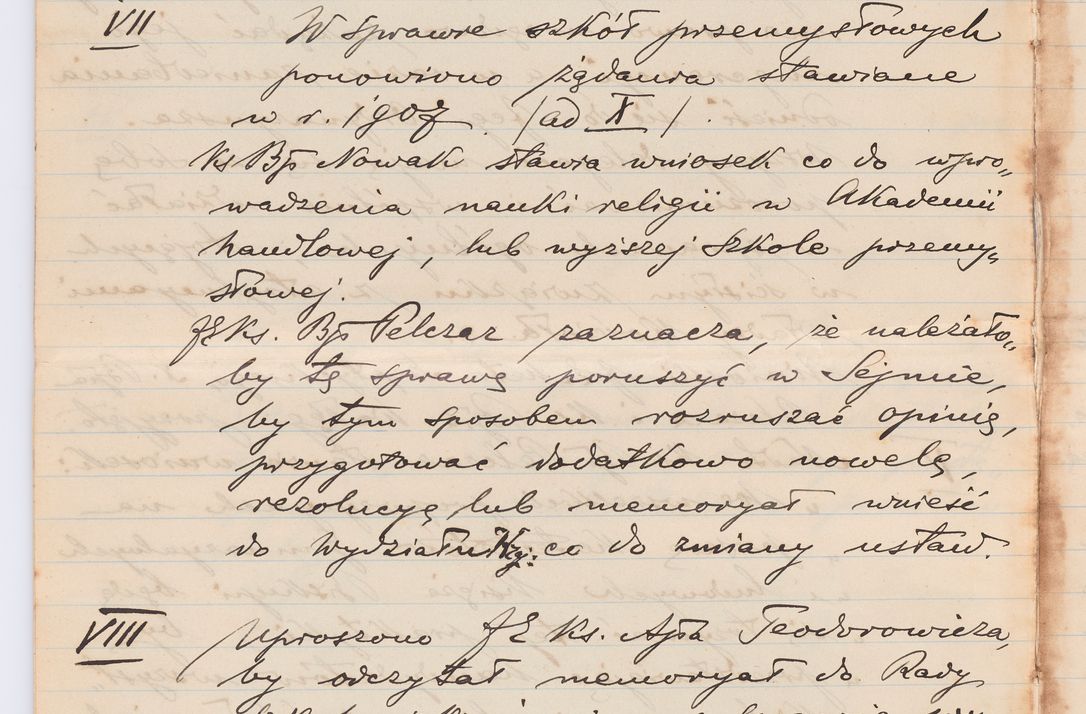 VII W sprawie szkół przemysłowych
ponowiono żądania stawiane
w r. 1907. /ad X/.
Ks Bp Nowak stawia wniosek co do wpro„
wadzenia nauki religii w Akademii
handlowej, lub wyższej szkole przemy„
słowej.
JE Ks. Bp Pelczar zaznacza, że należało„
by tę sprawę poruszyć w Sejmie,
by tym sposobem rozruszać opinię,
przygotować dodatkowo nowelę,
rezolucyę lub memoryał wnieść
do Wydziału Kraj: co do zmiany ustaw.
VIII Uproszono JE Ks. Apa Teodorowicza,
by odczytał memoryał do Rady